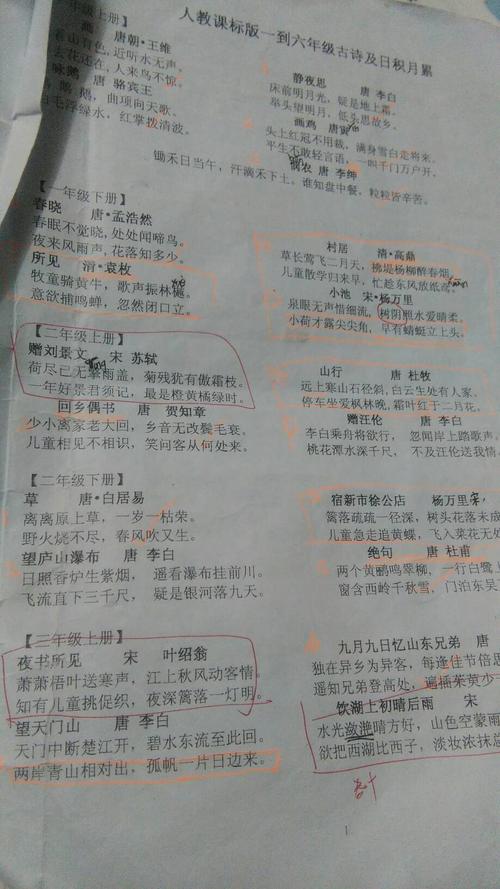 人教课标版一到六年级古诗及日积月累
年级上册】
画 唐朝·王维
看山有色,近听水无声。
去花还在,人来鸟不惊。
咏鹅 唐 骆宾王
鹅,曲项向天歌。
白毛浮绿水,红掌拨清波。
静夜思 唐 李白
床前明月光,疑是地上霜。
举头望明月,低头思故乡。
画鸡 唐寅
头上红冠不用裁,满身雪白走将来。
平生不敢轻言语,一叫千门万户开。
悯农 唐 李绅
锄禾日当午,汗滴禾下土。谁知盘中餐,粒粒皆辛苦。
【一年级下册】
春晓 唐·孟浩然
春眠不觉晓,处处闻啼鸟。
夜来风雨声,花落知多少。
所见 清·袁枚
牧童骑黄牛,歌声振林樾。
意欲捕鸣蝉,忽然闭口立。
村居 清·高鼎
草长莺飞二月天,拂堤杨柳醉春烟。
儿童散学归来早,忙趁东风放纸鸢。
小池 宋·杨万里
泉眼无声惜细流,树阴照水爱晴柔。
小荷才露尖尖角,早有蜻蜓立上头。
【二年级上册】
赠刘景文 宋 苏轼
荷尽已无擎雨盖,菊残犹有傲霜枝。
一年好景君须记,最是橙黄橘绿时。
回乡偶书 唐 贺知章
少小离家老大回,乡音无改鬓毛衰。
儿童相见不相识,笑问客从何处来。
山行 唐 杜牧
远上寒山石径斜,白云生处有人家。
停车坐爱枫林晚,霜叶红于二月花。
赠汪伦 唐
李白乘舟将欲行,忽闻岸上踏歌声。
桃花潭水深千尺,不及汪伦送我情。
【二年级下册】
草 唐·白居易
离离原上草,一岁一枯荣。
野火烧不尽,春风吹又生。
望庐山瀑布 唐 李白
日照香炉生紫烟,遥看瀑布挂前川。
飞流直下三千尺,疑是银河落九天。
宿新市徐公店 杨万里宋
篱落疏疏一径深,树头花落未成
儿童急走追黄蝶,飞入菜花无处
绝句 唐 杜甫
两个黄鹂鸣翠柳,一行白鹭上
窗含西岭千秋雪,门泊东吴
【三年级上册】
夜书所见 宋 叶绍翁
萧萧梧叶送寒声,江上秋风动客情。
知有儿童挑促织,夜深篱落一灯明。
望天门山 唐 李白
天门中断楚江开,碧水东流至此回。
两岸青山相对出,孤帆一片日边来。
九月九日忆山东兄弟 唐
独在异乡为异客,每逢佳节倍
遥知兄弟登高处,遍插茱萸少一
饮湖上初晴后雨 宋
水光潋滟晴方好,山色空蒙雨
欲把西湖比西子,淡妆浓抹
1